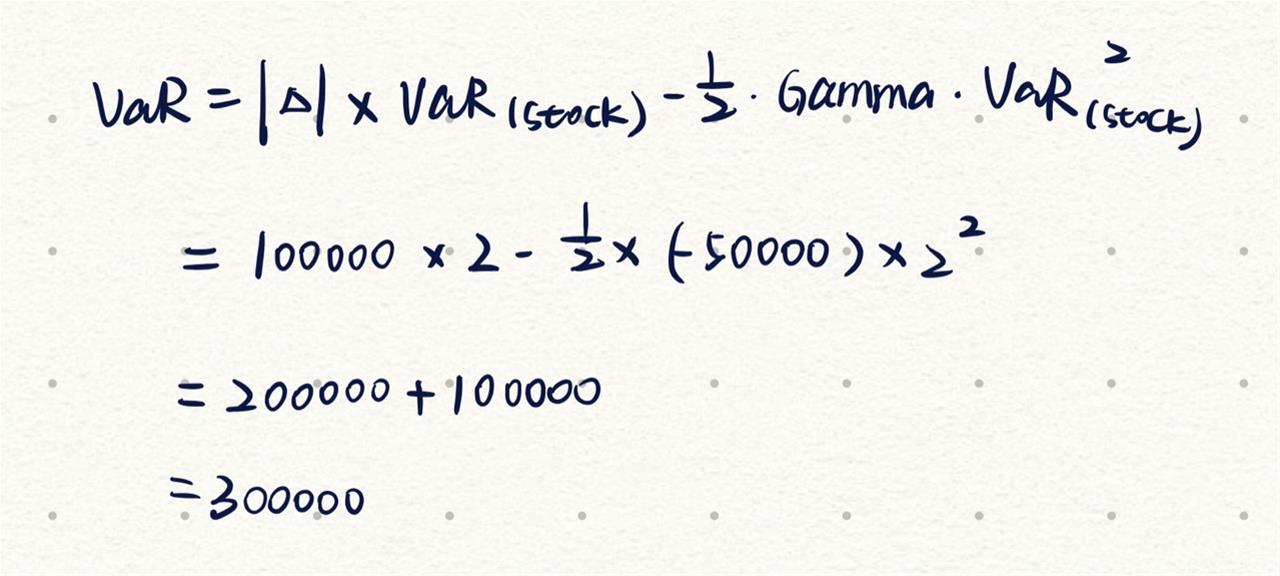 VaR = |Δ| × VaR(stock) - 1/2 · Gamma · VaR²(stock)
= 100000 × 2 - 1/2 × (-50000) × 2²
= 200000 + 100000
= 300000